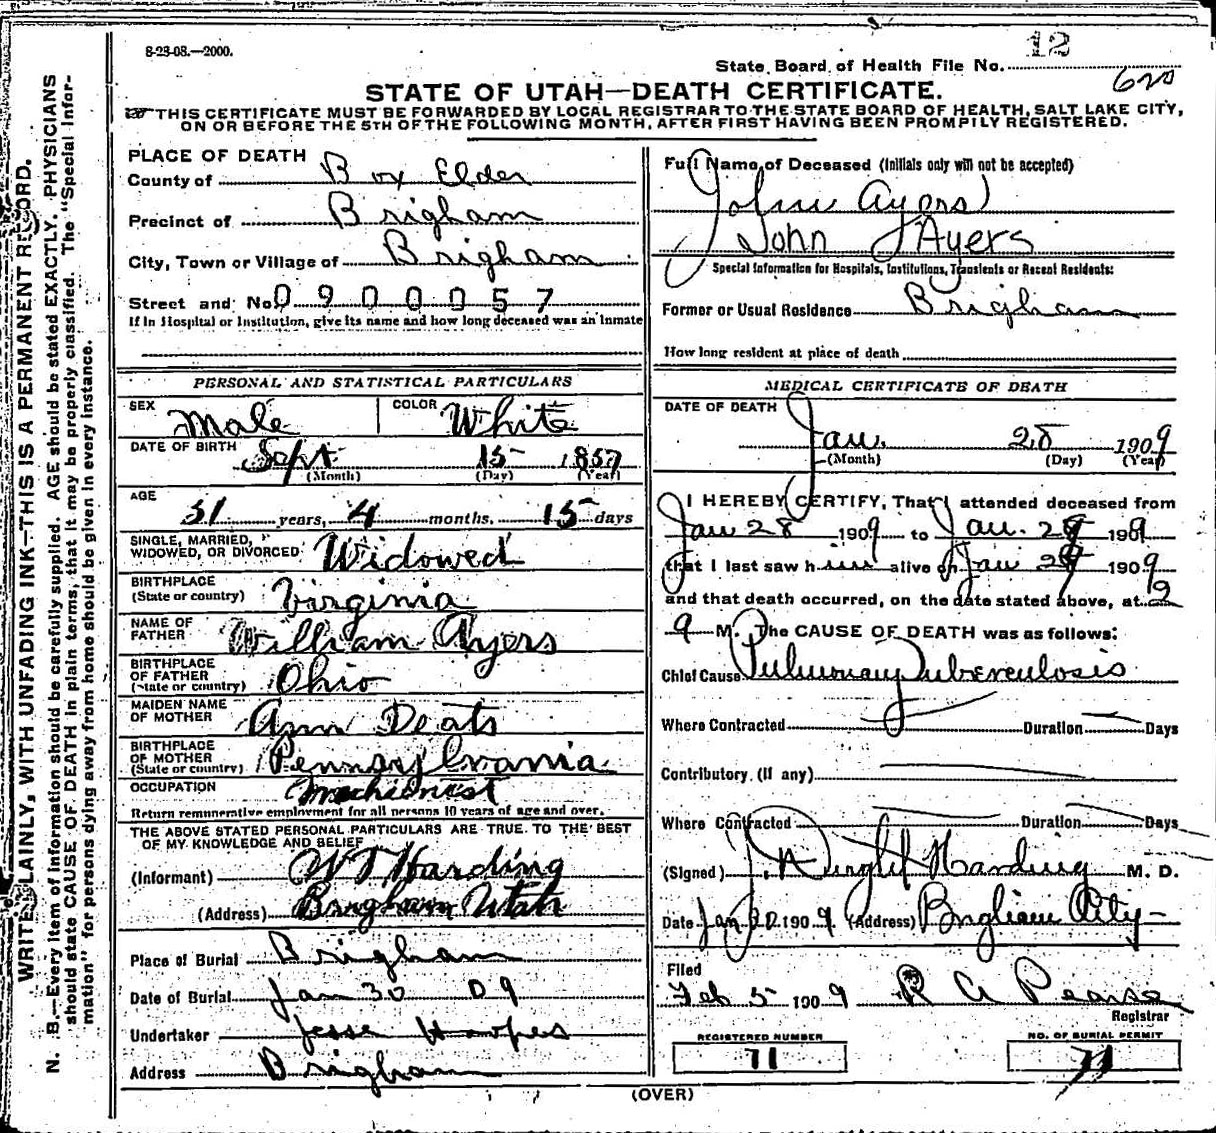 8-23-08.—2000.
12
State Board of Health File No.
620
STATE OF UTAH—DEATH CERTIFICATE.
THIS CERTIFICATE MUST BE FORWARDED BY LOCAL REGISTRAR TO THE STATE BOARD OF HEALTH, SALT LAKE CITY,
ON OR BEFORE THE 5TH OF THE FOLLOWING MONTH, AFTER FIRST HAVING BEEN PROMPILY REGISTERED.
WRITE PLAINLY, WITH UNFADING INK—THIS IS A PERMANENT RECORD.
N. B.—Every item of information should be carefully supplied. AGE should be stated EXACTLY. PHYSICIANS
should state CAUSE OF DEATH in plain terms, that it may be properly classified. The "Special Infor-
mation" for persons dying away from home should be given in every instance.
PLACE OF DEATH
County of Box Elder
Precinct of Brigham
City, Town or Village of Brigham
Street and No. 0 9 0 0 0 5 7
If in Hospital or Institution, give its name and how long deceased was an inmate
PERSONAL AND STATISTICAL PARTICULARS
SEX Male COLOR White
DATE OF BIRTH Sept 15 1857
(Month) (Day) (Year)
AGE
51 years, 4 months, 15 days
SINGLE, MARRIED,
WIDOWED, OR DIVORCED Widowed
BIRTHPLACE
(State or country) Virginia
NAME OF
FATHER William Ayers
BIRTHPLACE
OF FATHER
(State or country) Ohio
MAIDEN NAME
OF MOTHER Ann Deats
BIRTHPLACE
OF MOTHER
(State or country) Pennasylvania
OCCUPATION Mechienest
Return remunerative employment for all persons 10 years of age and over.
THE ABOVE STATED PERSONAL PARTICULARS ARE TRUE TO THE BEST
OF MY KNOWLEDGE AND BELIEF
(Informant) W T Harding
(Address) Brigham Utah
Place of Burial Brigham
Date of Burial Jan 30 09
Undertaker Jesse
Address Brigham
Full Name of Deceased (Initials only will not be accepted)
John Ayers
John J Ayers
Special Information for Hospitals, Institutions, Transients or Recent Residents:
Former or Usual Residence Brigham
How long resident at place of death
MEDICAL CERTIFICATE OF DEATH
DATE OF DEATH
Jan. 28 1909
(Month) (Day) (Year)
I HEREBY CERTIFY, That I attended deceased from
Jan 28 1909 to Jan. 1909
that I last saw him alive on Jan 1909
and that death occurred, on the date stated above, at 2
9 M. The CAUSE OF DEATH was as follows:
Chief Cause Pulmonary Tuberculosis
Where Contracted Duration Days
Contributory (if any)
Where Contracted Duration Days
(Signed) Harding M. D.
Date Jan 30 1909 (Address) Brigham City
Filed
Feb 5 1909 R A Pearse
Registrar
REGISTERED NUMBER
71
NO. OF BURIAL PERMIT
71
(OVER)